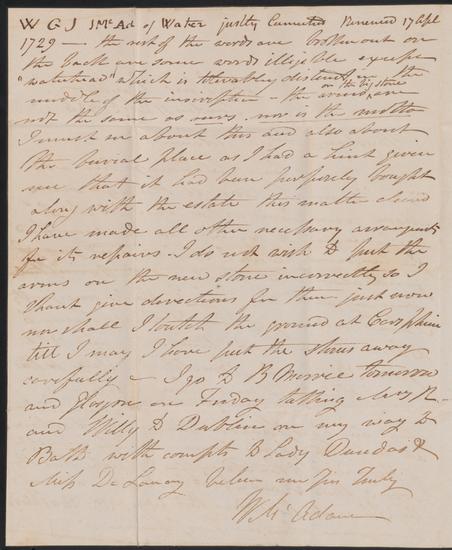 W G J J McAd of Water justly Renewed 17 Apl
1729 — the rest of the words are broken out on
the back are some words illegible except
"waterhead" which is tolerably distinct in the
middle of the inscription — the arms on the big stone are
not the same as ours. nor is the motto
I must see about this and also about
the burial place as I had a hint given
me that it had been purposely bought
along with the estate this matter
I have made all other necessary arrangements
for its repairs. I do not wish to put the
arms on the new stone incorrectly so I
shant give directions for them just now
nor shall I touch the ground at
till I may I have put the stones away
carefully — I go to B tomorrow
and on Friday taking
and Willy to Dublin on my way to
Bath with compts to Lady Dundas &
Miss De believe me yrs truly
W McAdam